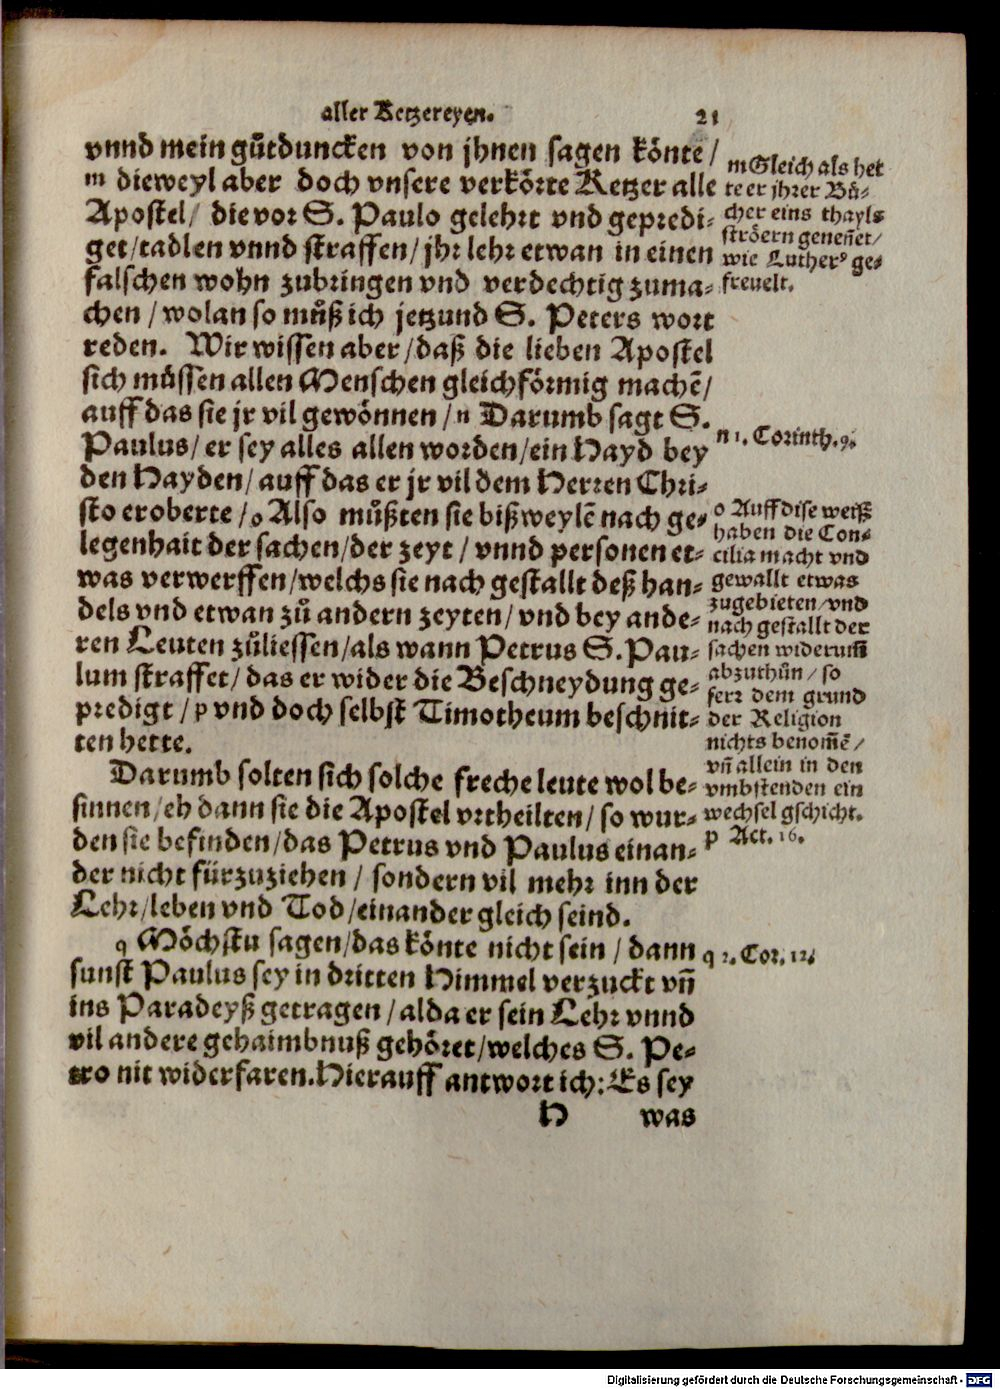 aller Ketzereyen. 21
vnnd mein gůtduncken von jhnen sagen könte /
m dieweyl aber doch vnsere verkörte Ketzer alle
Apostel / die vor S. Paulo gelehrt vnd gepredi-
get / tadlen vnnd straffen / jhr lehr etwan in einen
falschen wohn zubringen vnd verdechtig zuma-
chen / wolan so můß ich jetzund S. Peters wort
reden. Wir wissen aber / daß die lieben Apostel
sich müssen allen Menschen gleichförmig machẽ /
auff das sie jr vil gewönnen / n Darumb sagt S.
Paulus / er sey alles allen worden / ein Hayd bey
den Hayden / auff das er jr vil dem Herren Chri-
sto eroberte / o Also můßten sie bißweylẽ nach ge-
legenhait der sachen / der zeyt / vnnd personen et-
was verwerffen / welchs sie nach gestallt deß han-
dels vnd etwan zů andern zeyten / vnd bey ande-
ren Leuten zůliessen / als wann Petrus S. Pau-
lum straffet / das er wider die Beschneydung ge-
predigt / p vnd doch selbst Timotheum beschnit-
ten hette.
Darumb solten sich solche freche leute wol be-
sinnen / eh dann sie die Apostel vrtheilten / so wur-
den sie befinden / das Petrus vnd Paulus einan-
der nicht fürzuziehen / sondern vil mehr inn der
Lehr / leben vnd Tod / einander gleich seind.
q Möchstu sagen / das könte nicht sein / dann
sunst Paulus sey in dritten Himmel verzuckt vñ
ins Paradeyß getragen / alda er sein Lehr vnnd
vil andere gehaimbnuß gehöret / welches S. Pe-
tro nit widerfaren. Hierauff antwort ich: Es sey
H was
m Gleich als het
te er jhrer Bü-
cher eins thayls
ströern geneñet /
wie Luther⁹ ge-
freuelt.
n 1. Corinth. 9.
o Auff dise weiß
haben die Con-
cilia macht vnd
gewallt etwas
zugebieten / vnd
nach gestallt der
sachen widerum̃
abzuthůn / so
ferr dem grund
der Religion
nichts benom̃ẽ /
vñ allein in den
vmbstenden ein
wechsel gschicht.
p Act. 16.
q 2. Cor. 12.
Digitalisierung gefördert durch die Deutsche Forschungsgemeinschaft - DFG